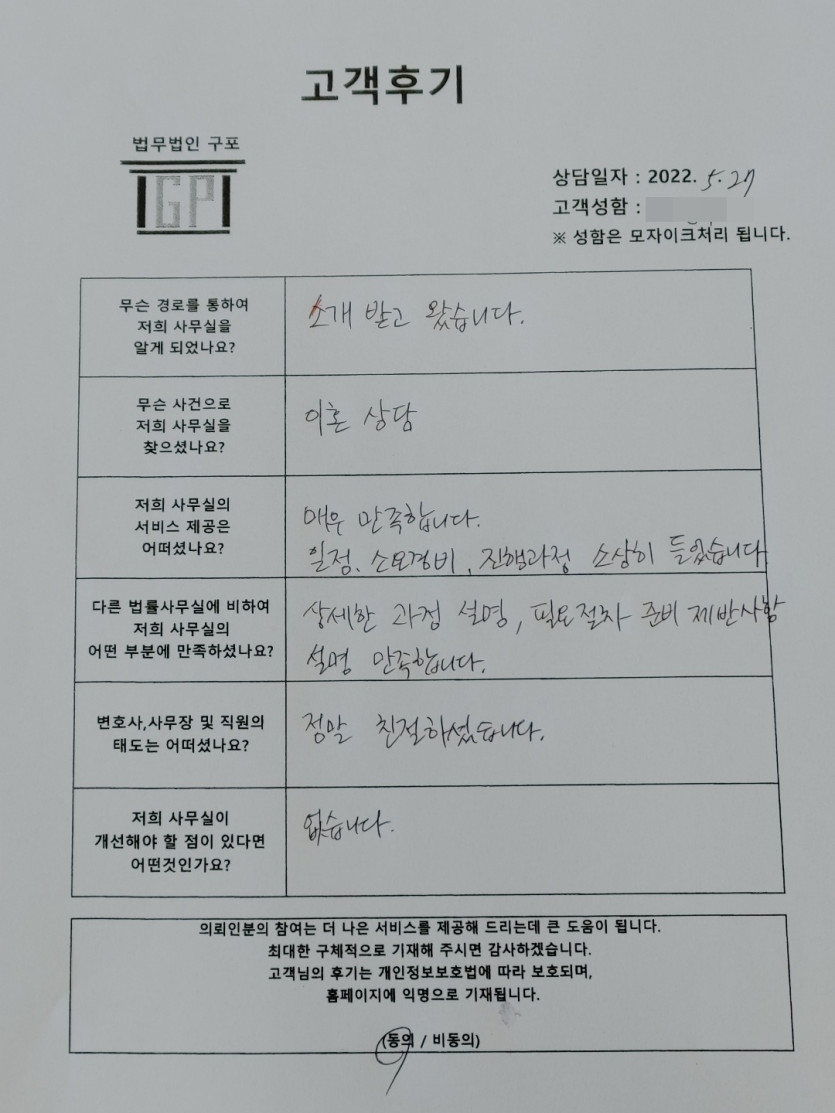 고객후기
법무법인 구포
GP
상담일자 : 2022. 5. 27
고객성함 :
※ 성함은 모자이크처리 됩니다.
무슨 경로를 통하여
저희 사무실을
알게 되었나요?
소개 받고 왔습니다.
무슨 사건으로
저희 사무실을
찾으셨나요?
이혼 상담
저희 사무실의
서비스 제공은
어떠셨나요?
매우 만족합니다.
일정, 소요경비, 진행과정 소상히 들었습니다
다른 법률사무실에 비하여
저희 사무실의
어떤 부분에 만족하셨나요?
상세한 과정 설명, 필요절차 준비 제반사항
설명 만족합니다.
변호사,사무장 및 직원의
태도는 어떠셨나요?
정말 친절하셨습니다.
저희 사무실이
개선해야 할 점이 있다면
어떤것인가요?
없습니다.
의뢰인분의 참여는 더 나은 서비스를 제공해 드리는데 큰 도움이 됩니다.
최대한 구체적으로 기재해 주시면 감사하겠습니다.
고객님의 후기는 개인정보보호법에 따라 보호되며,
홈페이지에 익명으로 기재됩니다.
(동의 / 비동의)